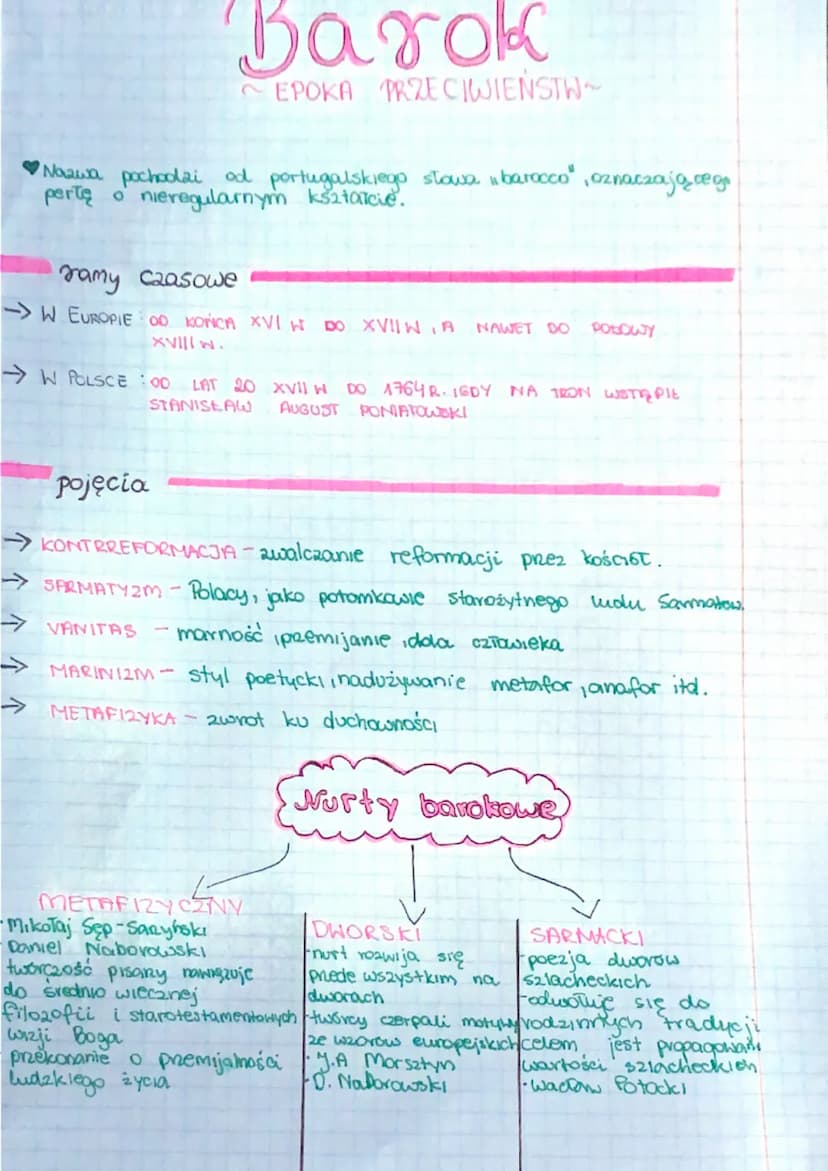 Barok
~ EPOKA PRZECIWIEŃSTW ~
♥ Nazwa pochodzi od portugalskiego słowa „barocco", oznaczającego
perłę o nieregularnym kształcie.
ramy czasowe
→ W EUROPIE : OD KOŃCA XVI W DO XVII W, A NAWET DO POŁOWY
XVIII W.
→ W POLSCE : OD LAT 20 XVII W DO 1764R. IGDY NA TRON WSTĄPIŁ
STANISŁAW AUGUST PONIATOWSKI
pojęcia
→ KONTRREFORMACJA - zwalczanie reformacji przez kościół.
→ SARMATYZM - Polacy, jako potomkowie starożytnego ludu Sarmatow.
→ VANITAS - marność, przemijanie, dola człowieka
→ MARINIZM - styl poetycki, nadużywanie metafor, anafor itd.
→ METAFIZYKA - zwrot ku duchowności
Nurty barokowe
METAFIZYCZNY
· Mikołaj Sęp-Sarzyński
Daniel Naborowski
twórczość pisarzy nawiązuje
do średnio wiecznej
filozofii i starotestamentowych
wizji Boga
przekonanie o przemijalności
ludzkiego życia
DWORSKI
-nurt rozwija się
przede wszystkim na
dworach
-twórcy czerpali motywy
ze wzorów europejskich
· J.A Morsztyn
· D. Naborowski
SARMACKI
-poezja dworów
szlacheckich
-odwołuje się do
rodzimych tradycji
celem jest propagowanie
wartości szlacheckich
· Wacław Potocki